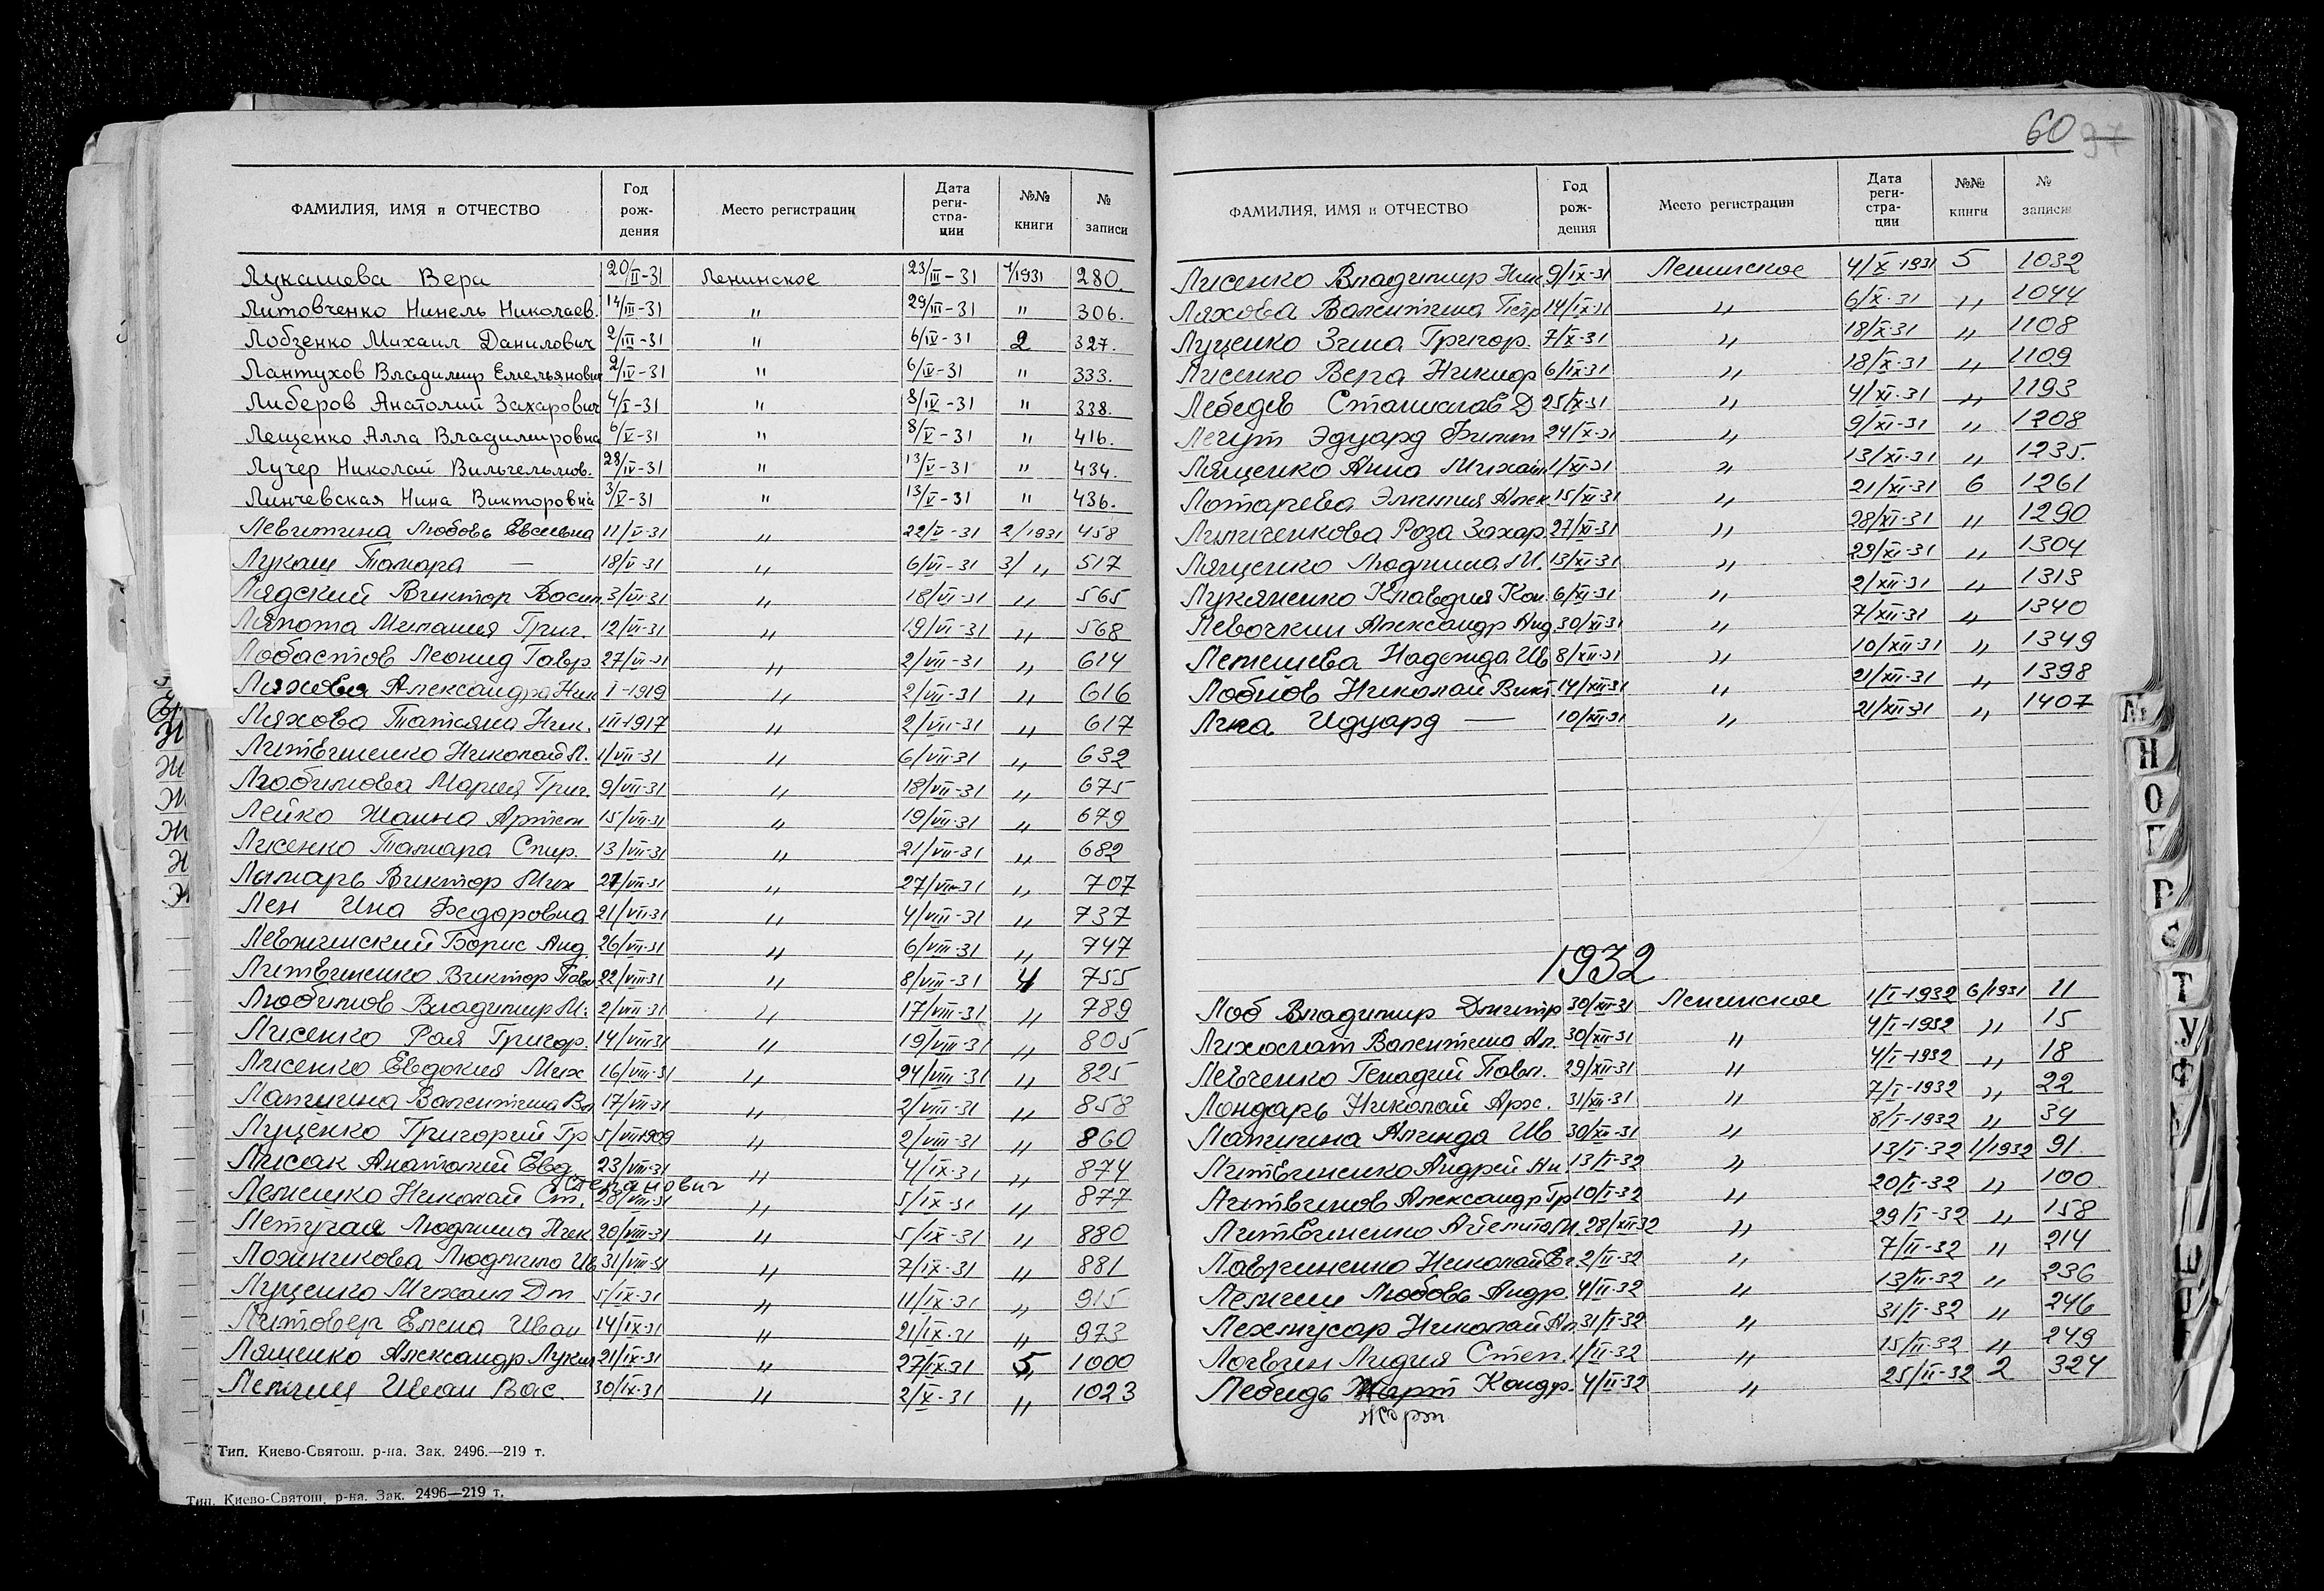 60 97
ФАМИЛИЯ, ИМЯ и ОТЧЕСТВО Год рождения Место регистрации Дата регистрации №№ книги № записи
Лукашева Вера 20/II-31 Ленинское 23/III-31 1/1931 280.
Литовченко Нинель Николаев. 14/III-31 " 29/III-31 " 306.
Лобзенко Михаил Данилович 2/III-31 " 6/IV-31 2 327.
Лантухов Владимир Емельянович 2/IV-31 " 6/IV-31 " 333.
Либеров Анатолий Захарович 4/I-31 " 8/IV-31 " 338.
Лещенко Алла Владимировна 6/V-31 " 8/V-31 " 416.
Лучер Николай Вильгельмов. 28/IV-31 " 13/V-31 " 434.
Линчевская Нина Викторовна 3/V-31 " 13/V-31 " 436.
Левитина Любовь Евсеевна 11/V-31 " 22/V-31 2/1931 458
Лукаш Тамара — 18/V-31 " 6/VI-31 3/ " 517
Лядский Виктор Васил. 3/VI-31 " 18/VI-31 " 565
Ляпота Милания Григ. 12/VI-31 " 19/VI-31 " 568
Лобастов Леонид Гавр 27/VI-31 " 2/VII-31 " 614
Ляхова Александра Ник I-1919 " 2/VII-31 " 616
Ляхова Татяна Ник. III-1917 " 2/VII-31 " 617
Литвиненко Николай П. 1/VII-31 " 6/VII-31 " 632
Любимова Мария Григ. 9/VII-31 " 18/VII-31 " 675
Лейко Жанна Артем 15/VII-31 " 19/VII-31 " 679
Лисенко Тамара Спир. 13/VII-31 " 21/VII-31 " 682
Лымарь Виктор Мих 27/VII-31 " 27/VII-31 " 707
Лен Ина Федоровна 21/VII-31 " 4/VIII-31 " 737
Левжинский Борис Анд 26/VII-31 " 6/VIII-31 " 747
Литвиненко Виктор Павл 22/VII-31 " 8/VIII-31 4 755
Любимов Владимир М. 2/VIII-31 " 17/VIII-31 " 789
Лисенко Рая Григор. 14/VIII-31 " 19/VIII-31 " 805
Лисенко Евдокия Мих 16/VIII-31 " 24/VIII-31 " 825
Лапигина Валентина Вл 17/VII-31 " 2/VIII-31 " 858
Луценко Григорий Гр 5/VII 1909 " 2/VIII-31 " 860
Лисак Анатолий Евд. 23/VIII-31 " 4/IX-31 " 874
Степанович
Лемешко Николай Ст. 28/VIII-31 " 5/IX-31 " 877
Летучая Людмила Ник. 20/VIII-31 " 5/IX-31 " 880
Ложничкова Людмила Ив 31/VIII-31 " 7/IX-31 " 881
Луценко Михаил Дм 5/IX-31 " 11/IX-31 " 915
Литовер Елена Иван 14/IX-31 " 21/IX-31 " 973
Ляшенко Александр Лукич 21/IX-31 " 27/IX-31 5 1000
Лемиш Иван Вас. 30/IX-31 " 2/X-31 " 1023
Тип. Киево-Святош. р-на. Зак. 2496.—219 т.
Тип. Киево-Святош. р-на. Зак. 2496—219 т.
ФАМИЛИЯ, ИМЯ и ОТЧЕСТВО Год рождения Место регистрации Дата регистрации №№ книги № записи
Лисенко Владимир Ник 9/IX-31 Ленинское 4/X-1931 5 1032
Ляхова Валентина Петр 14/IX-31 " 6/X-31 " 1044
Луценко Зина Григор. 7/X-31 " 18/X-31 " 1108
Лисенко Вера Никиф 6/IX-31 " 18/X-31 " 1109
Лебедев Станислав Д 25/X-31 " 4/XI-31 " 1193
Легут Эдуард Филип 24/X-31 " 9/XI-31 " 1208
Лященко Анна Михайл 1/XI-31 " 13/XI-31 " 1235.
Лотарева Эмилия Алек. 15/XI-31 " 21/XI-31 6 1261
Линиченкова Роза Захар. 27/XI-31 " 28/XI-31 " 1290
Лященко Людмила М. 13/XI-31 " 29/XI-31 " 1304
Лукяненко Клавдия Кон. 6/XI-31 " 2/XII-31 " 1313
Левочкин Александр Анд. 30/XI-31 " 7/XII-31 " 1340
Лемешева Надежда Ив 8/XII-31 " 10/XII-31 " 1349
Лобнов Николай Викт 14/XII-31 " 21/XII-31 " 1398
Лика Идуард — 10/XII-31 " 21/XII-31 " 1407
1932
Лоб Владимир Дмитр 30/XII-31 Ленинское 1/I-1932 6/1931 11
Лихослат Валентина Ал. 30/XII-31 " 4/I-1932 " 15
Левченко Генадий Павл. 29/XII-31 " 4/I-1932 " 18
Лондарь Николай Арх. 31/XII-31 " 7/I-1932 " 22
Лапигина Алинда Ив 30/XII-31 " 8/I-1932 " 34
Литвиненко Андрей Ан. 13/I-32 " 13/I-32 1/1932 91.
Литвинов Александр Гр 10/I-32 " 20/I-32 " 100
Литвиненко М. 28/XII 32 " 29/I-32 " 158
Лавриненко Николай Ев. 2/II-32 " 7/II-32 " 214
Лемиш Любовь Андр. 4/II-32 " 13/II-32 " 236
Лехмусар Николай Ал. 31/I-32 " 31/I-32 " 246
Логвин Лидия Степ. 1/II-32 " 15/II-32 " 249
Лебидь Март Кондр. 4/II-32 " 25/II-32 2 324
М
Н
О
П
Р
С
Т
У
Ф